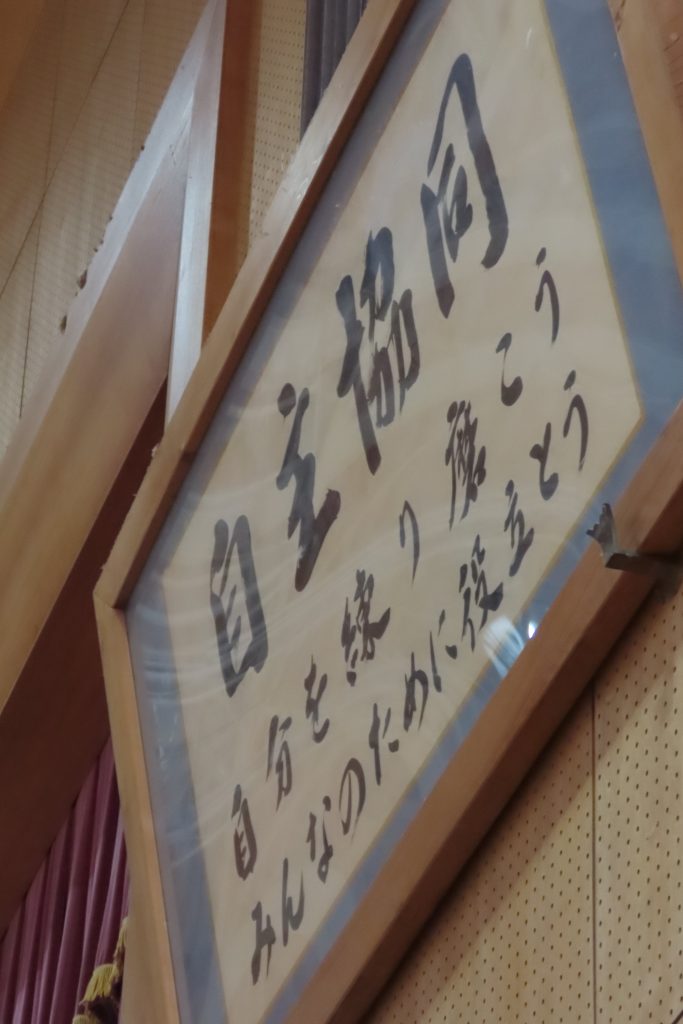 自主協同
自分を練り磨こう
みんなのために役立とう